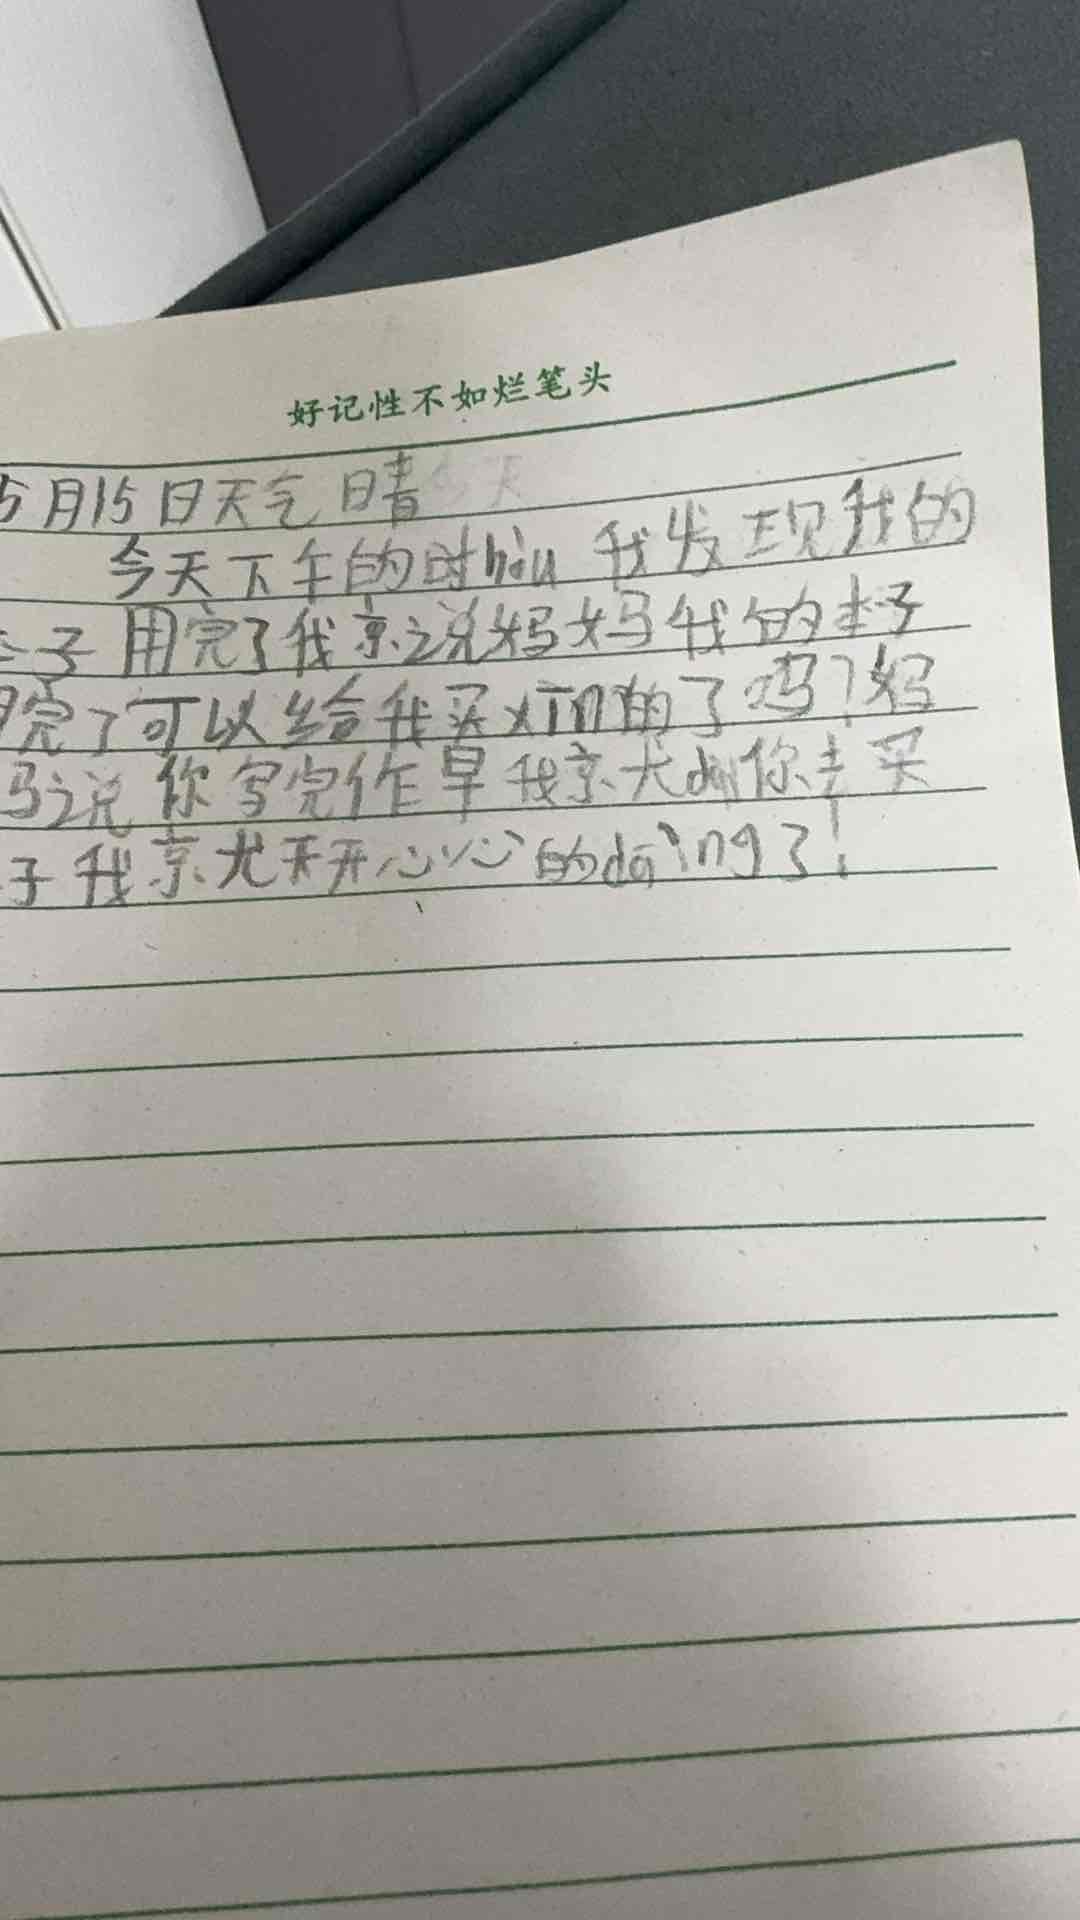 好记性不如烂笔头
5月15日天气晴今天
今天下午的时hòu我发现我的
子用完了我京说妈妈我的本子
完了可以给我买xīn的了吗?妈
马说你写完作早我京犬dai你去买
子我京尤开开心心的dāing了!